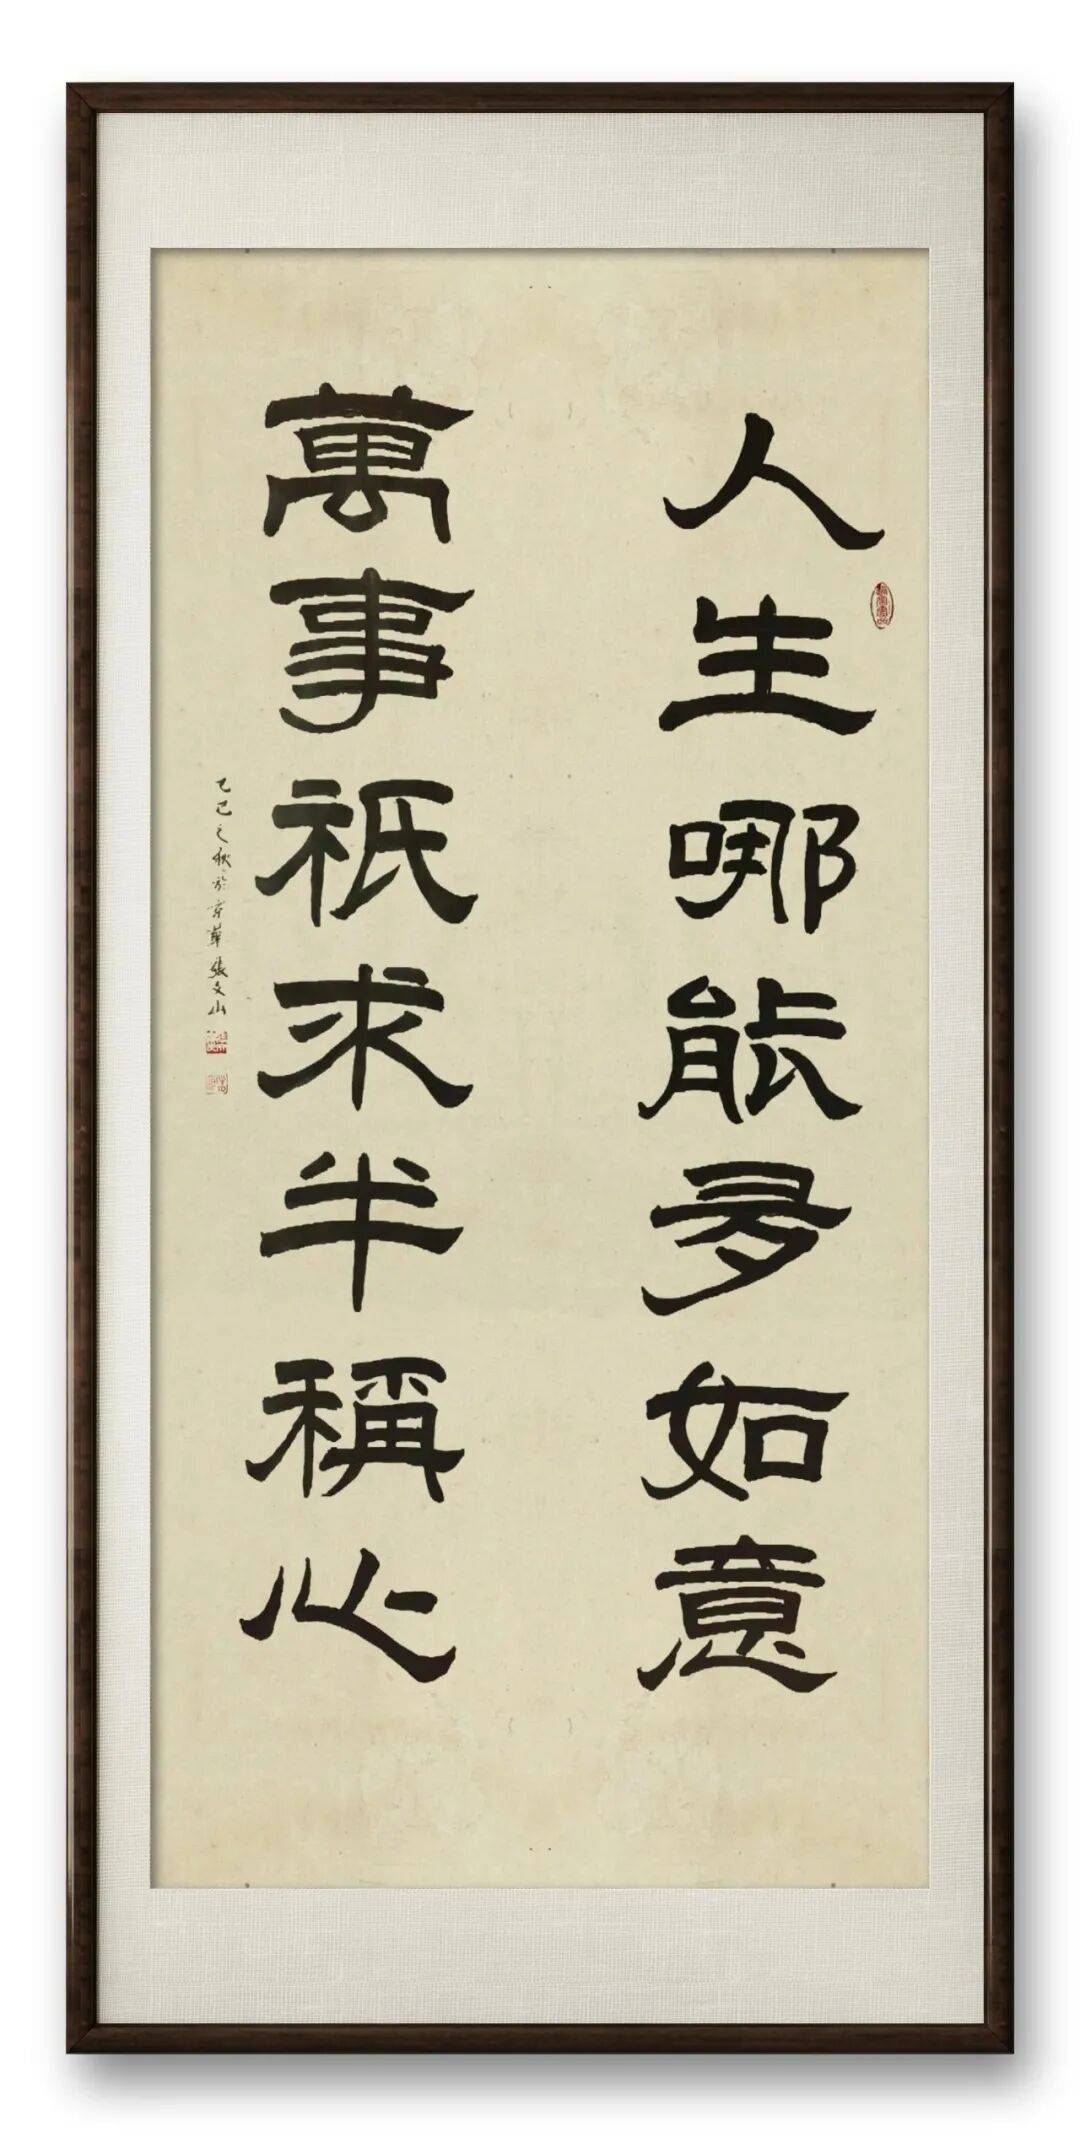 人生哪能多如意
萬事祇求半稱心
乙巳之秋於京華張文山